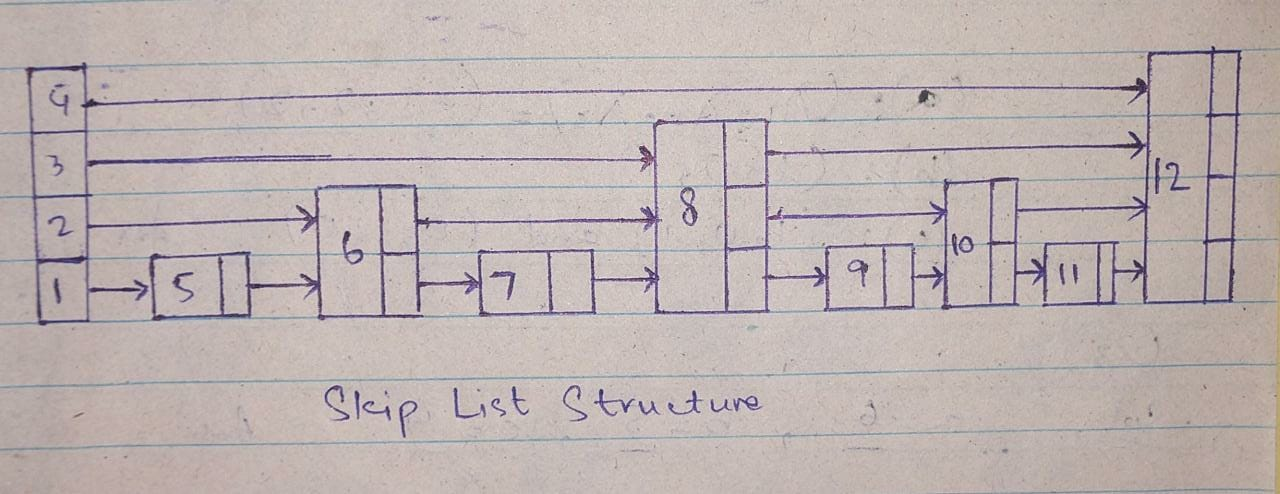 4
3
2
1
5
6
7
8
9
10
11
12
Skip List Structure